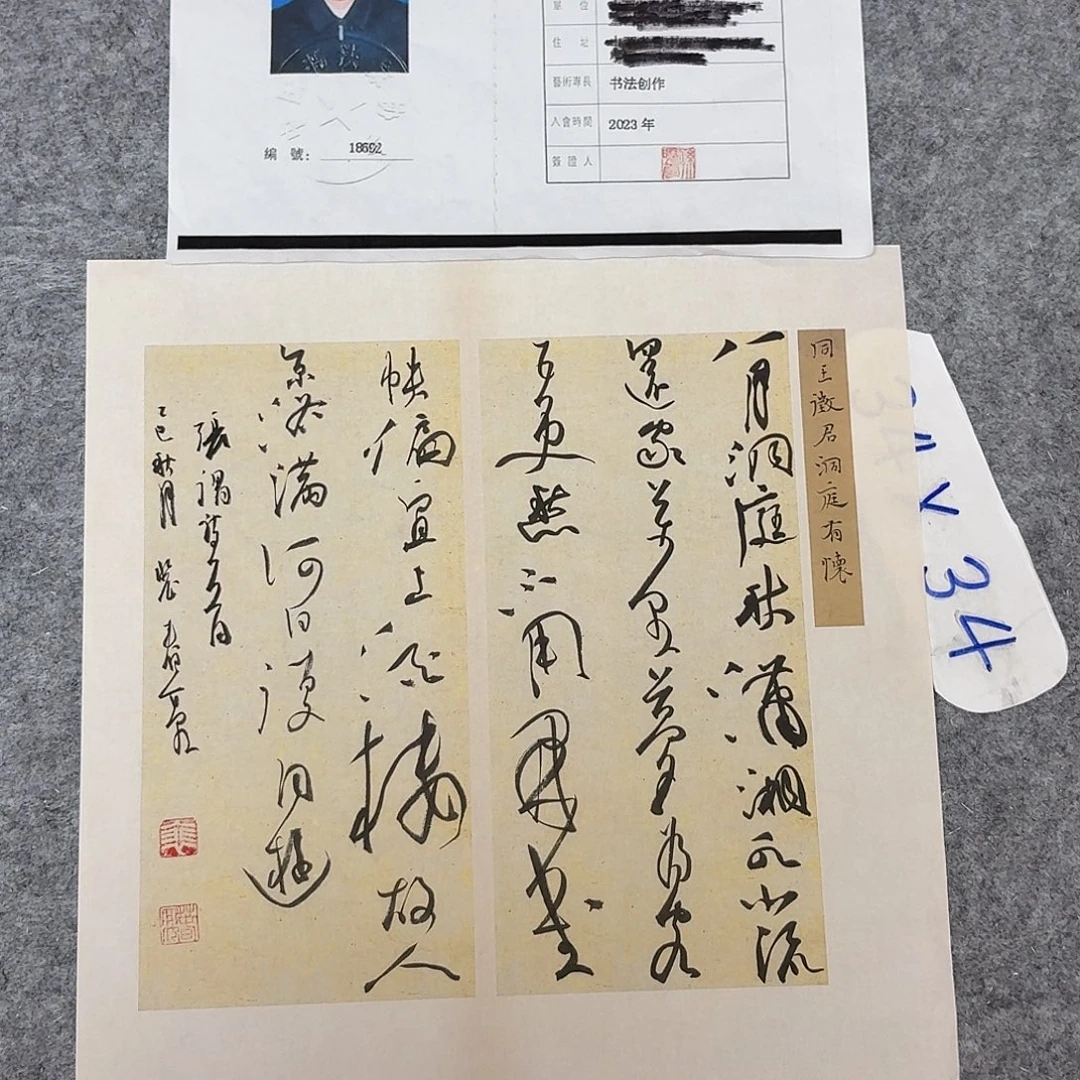 單位
住址
藝術專長 书法创作
入會時間 2023 年
簽證人
編號: 18692
同王徵君洞庭有懷
八月洞庭秋瀟湘水北流
還家萬里夢為客
五更愁不用開書
帙偏宜上酒樓故人
京洛滿何日復同遊
張謂詩
乙巳秋月
34